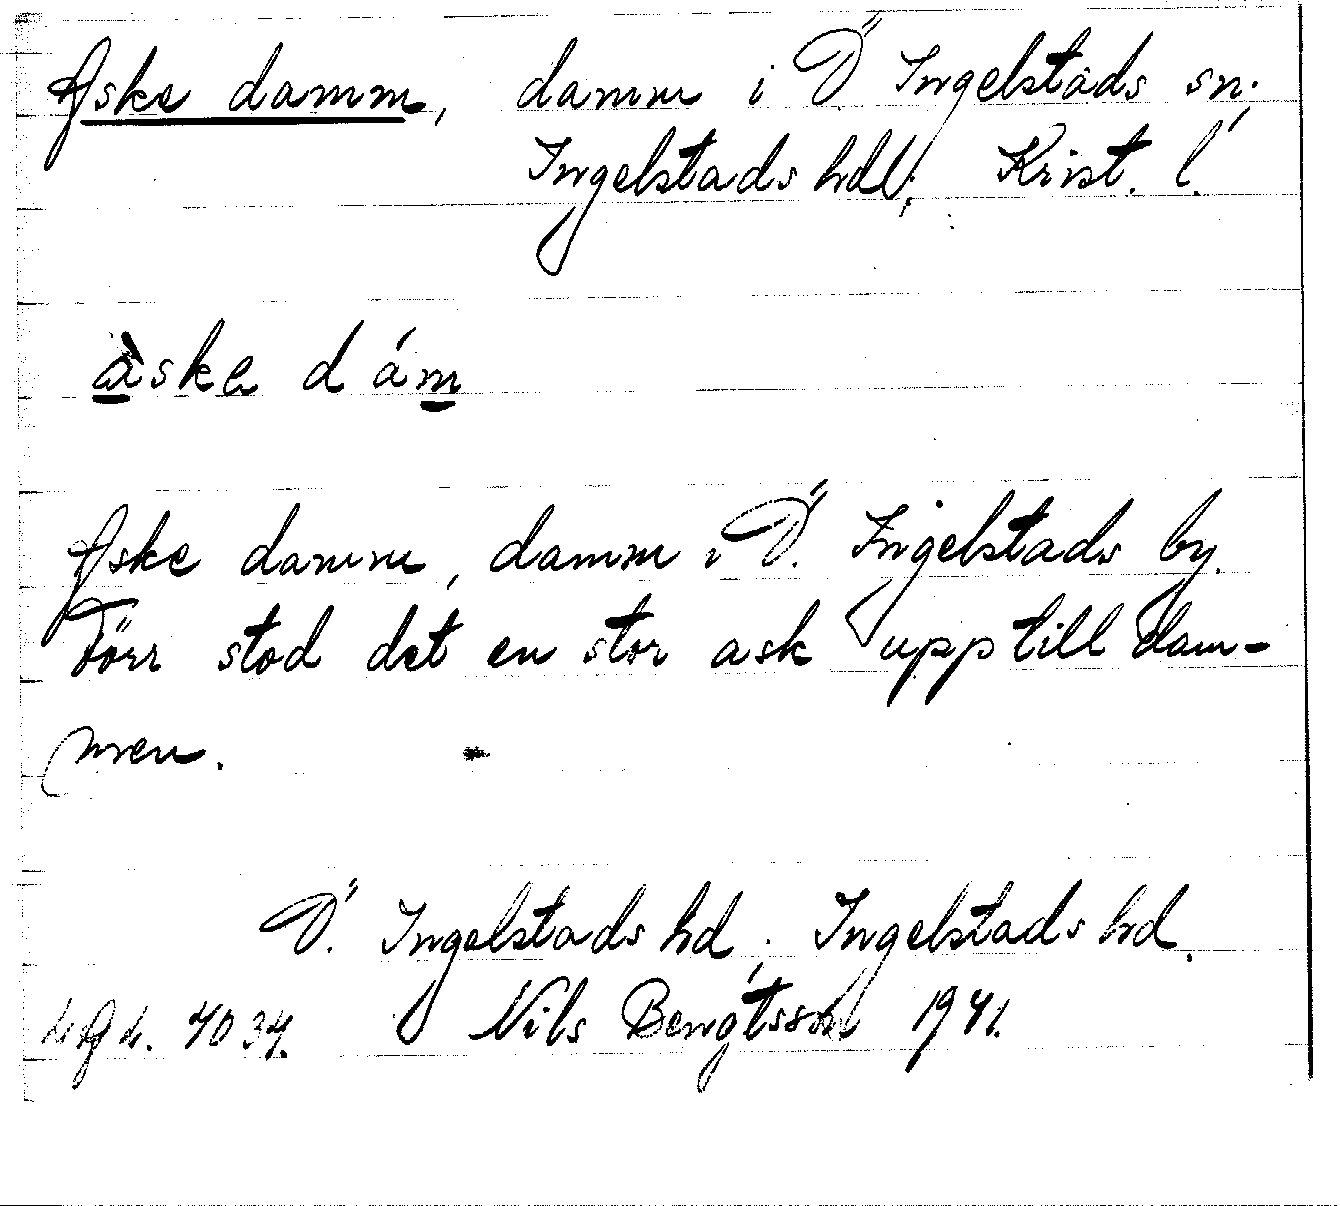 Aske damm, damm i Ö Ingelstads sn;
Ingelstads hd; Krist. l.
àske dám
Aske damm, damm i Ö. Ingelstads by.
Förr stod det en stor ask upp till dam-
men.
Ö. Ingelstads hd, Ingelstads hd.
4034. Nils Bengtsson 1941.